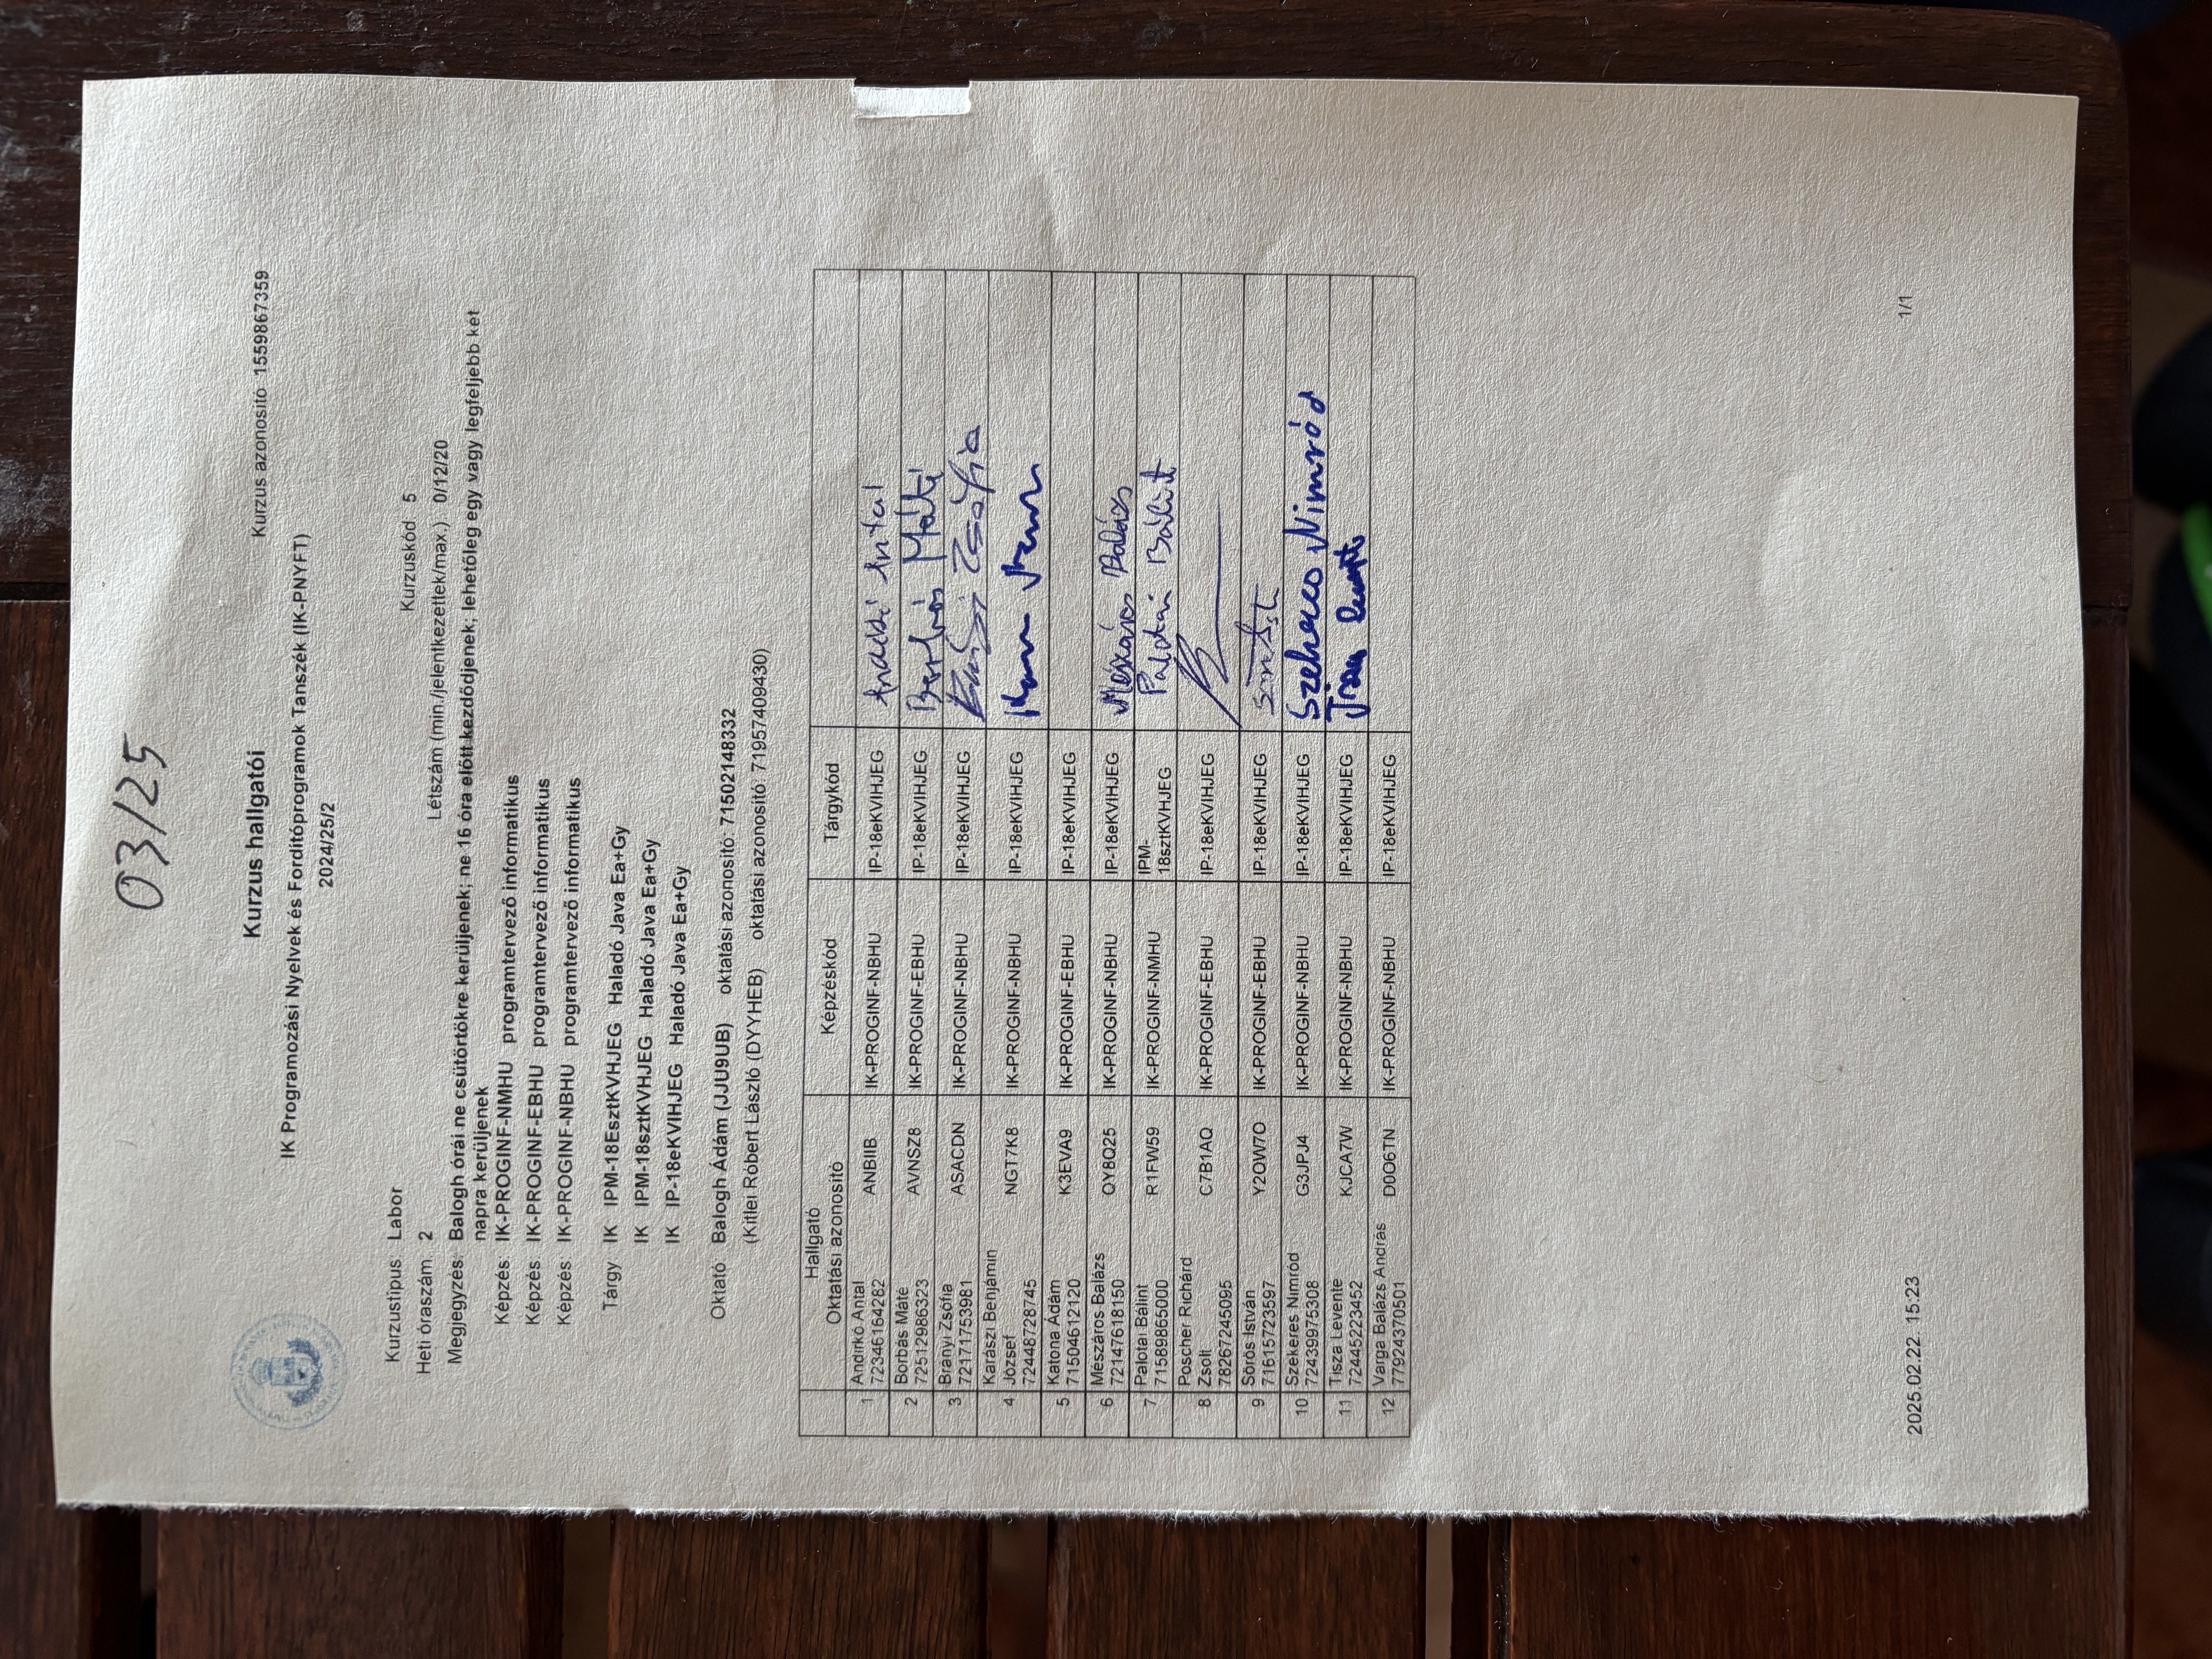 03/25
Kurzus hallgatói
Kurzus azonosító 1559867359
IK Programozási Nyelvek és Fordítóprogramok Tanszék (IK-PNYFT)
2024/25/2
Kurzustípus: Labor
Kurzuskód: 5
Heti óraszám: 2
Létszám (min./jelentkezettek/max.): 0/12/20
Megjegyzés: Balogh órái ne csütörtökre kerüljenek; ne 16 óra előtt kezdődjenek; lehetőleg egy vagy legfeljebb két
napra kerüljenek
Képzés: IK-PROGINF-NMHU programtervező informatikus
Képzés: IK-PROGINF-EBHU programtervező informatikus
Képzés: IK-PROGINF-NBHU programtervező informatikus
Tárgy: IK IPM-18EsztKVHJEG Haladó Java Ea+Gy
IK IPM-18sztKVHJEG Haladó Java Ea+Gy
IK IP-18eKVIHJEG Haladó Java Ea+Gy
Oktató: Balogh Ádám (JJU9UB) oktatási azonosító: 71502148332
(Kitlei Róbert László (DYYHEB) oktatási azonosító: 71957409430)
Hallgató
Oktatási azonosító Képzéskód Tárgykód
1 Andirkó Antal
72346164282 ANBIIB IK-PROGINF-NBHU IP-18eKVIHJEG Andirkó Antal
2 Borbás Máté
72512986323 AVNSZ8 IK-PROGINF-EBHU IP-18eKVIHJEG Borbás Máté
3 Brányi Zsófia
72171753981 ASACDN IK-PROGINF-NBHU IP-18eKVIHJEG Zsófia
4 Karászi Benjámin
József
72448728745 NGT7K8 IK-PROGINF-NBHU IP-18eKVIHJEG
5 Katona Ádám
71504612120 K3EVA9 IK-PROGINF-EBHU IP-18eKVIHJEG
6 Mészáros Balázs
72147618150 QY8Q25 IK-PROGINF-NBHU IP-18eKVIHJEG Mészáros Balázs
7 Palotai Bálint
71589865000 R1FW59 IK-PROGINF-NMHU IPM-
18sztKVHJEG Palotai Bálint
8 Poscher Richárd
Zsolt
78267245095 C7B1AQ IK-PROGINF-EBHU IP-18eKVIHJEG
9 Sörös István
71615723597 Y2OW7O IK-PROGINF-EBHU IP-18eKVIHJEG
10 Szekeres Nimród
72439975308 G3JPJ4 IK-PROGINF-NBHU IP-18eKVIHJEG Szekeres Nimród
11 Tisza Levente
72445223452 KJCA7W IK-PROGINF-NBHU IP-18eKVIHJEG Tisza Levente
12 Varga Balázs András
77924370501 D0O6TN IK-PROGINF-NBHU IP-18eKVIHJEG
2025.02.22. 15:23
1/1